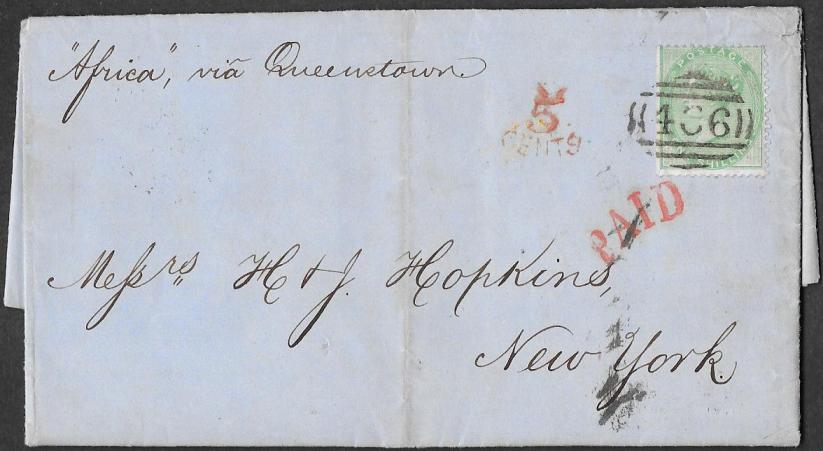 "Africa", via Queenstown.
5
CENTS
POSTAGE
466
PAID
Messrs H & J. Hopkins,
New York.